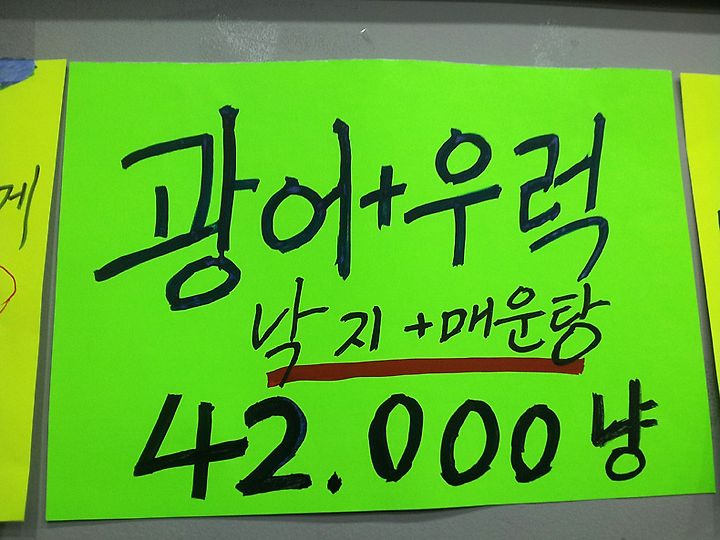 광어+우럭
낙지+매운탕
42.000냥
게